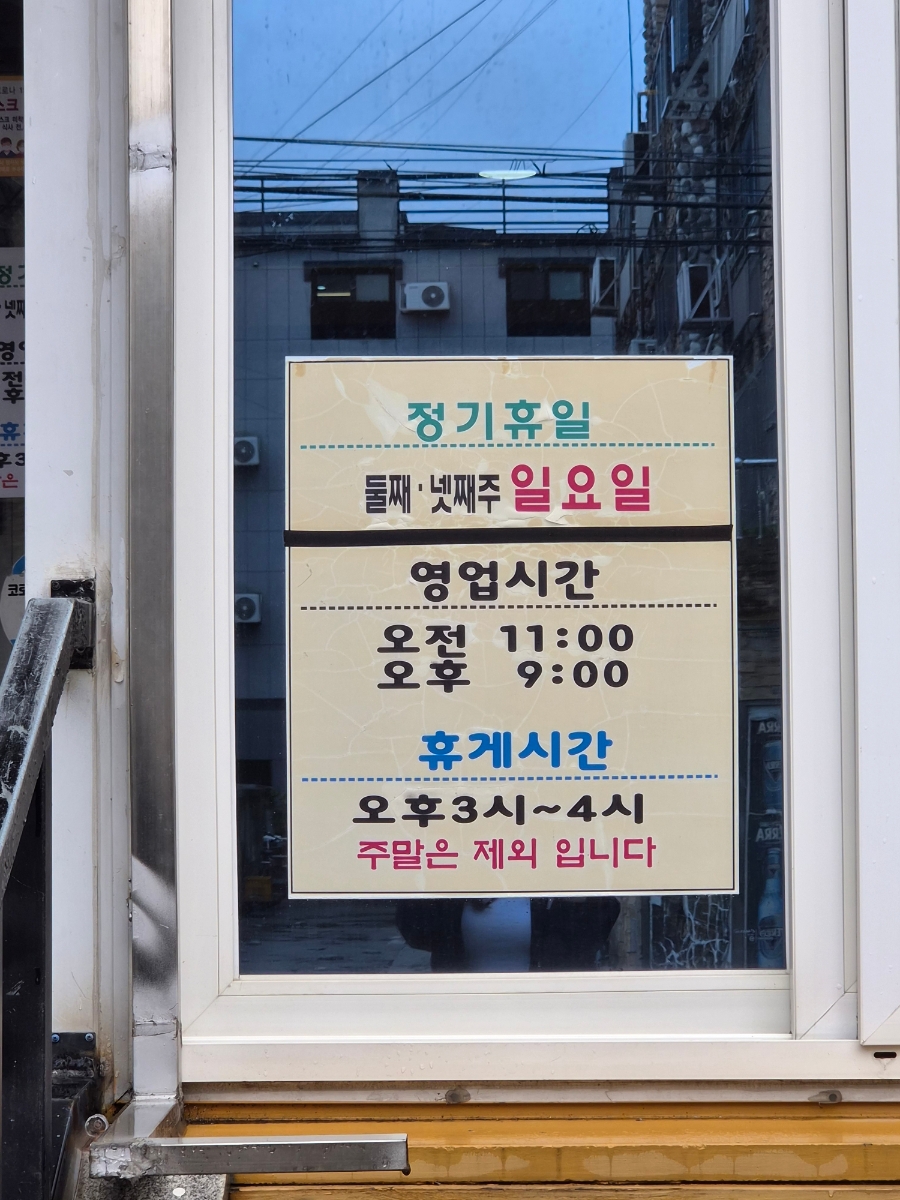 정기휴일
둘째·넷째주 일요일
영업시간
오전 11:00
오후 9:00
휴게시간
오후3시~4시
주말은 제외 입니다